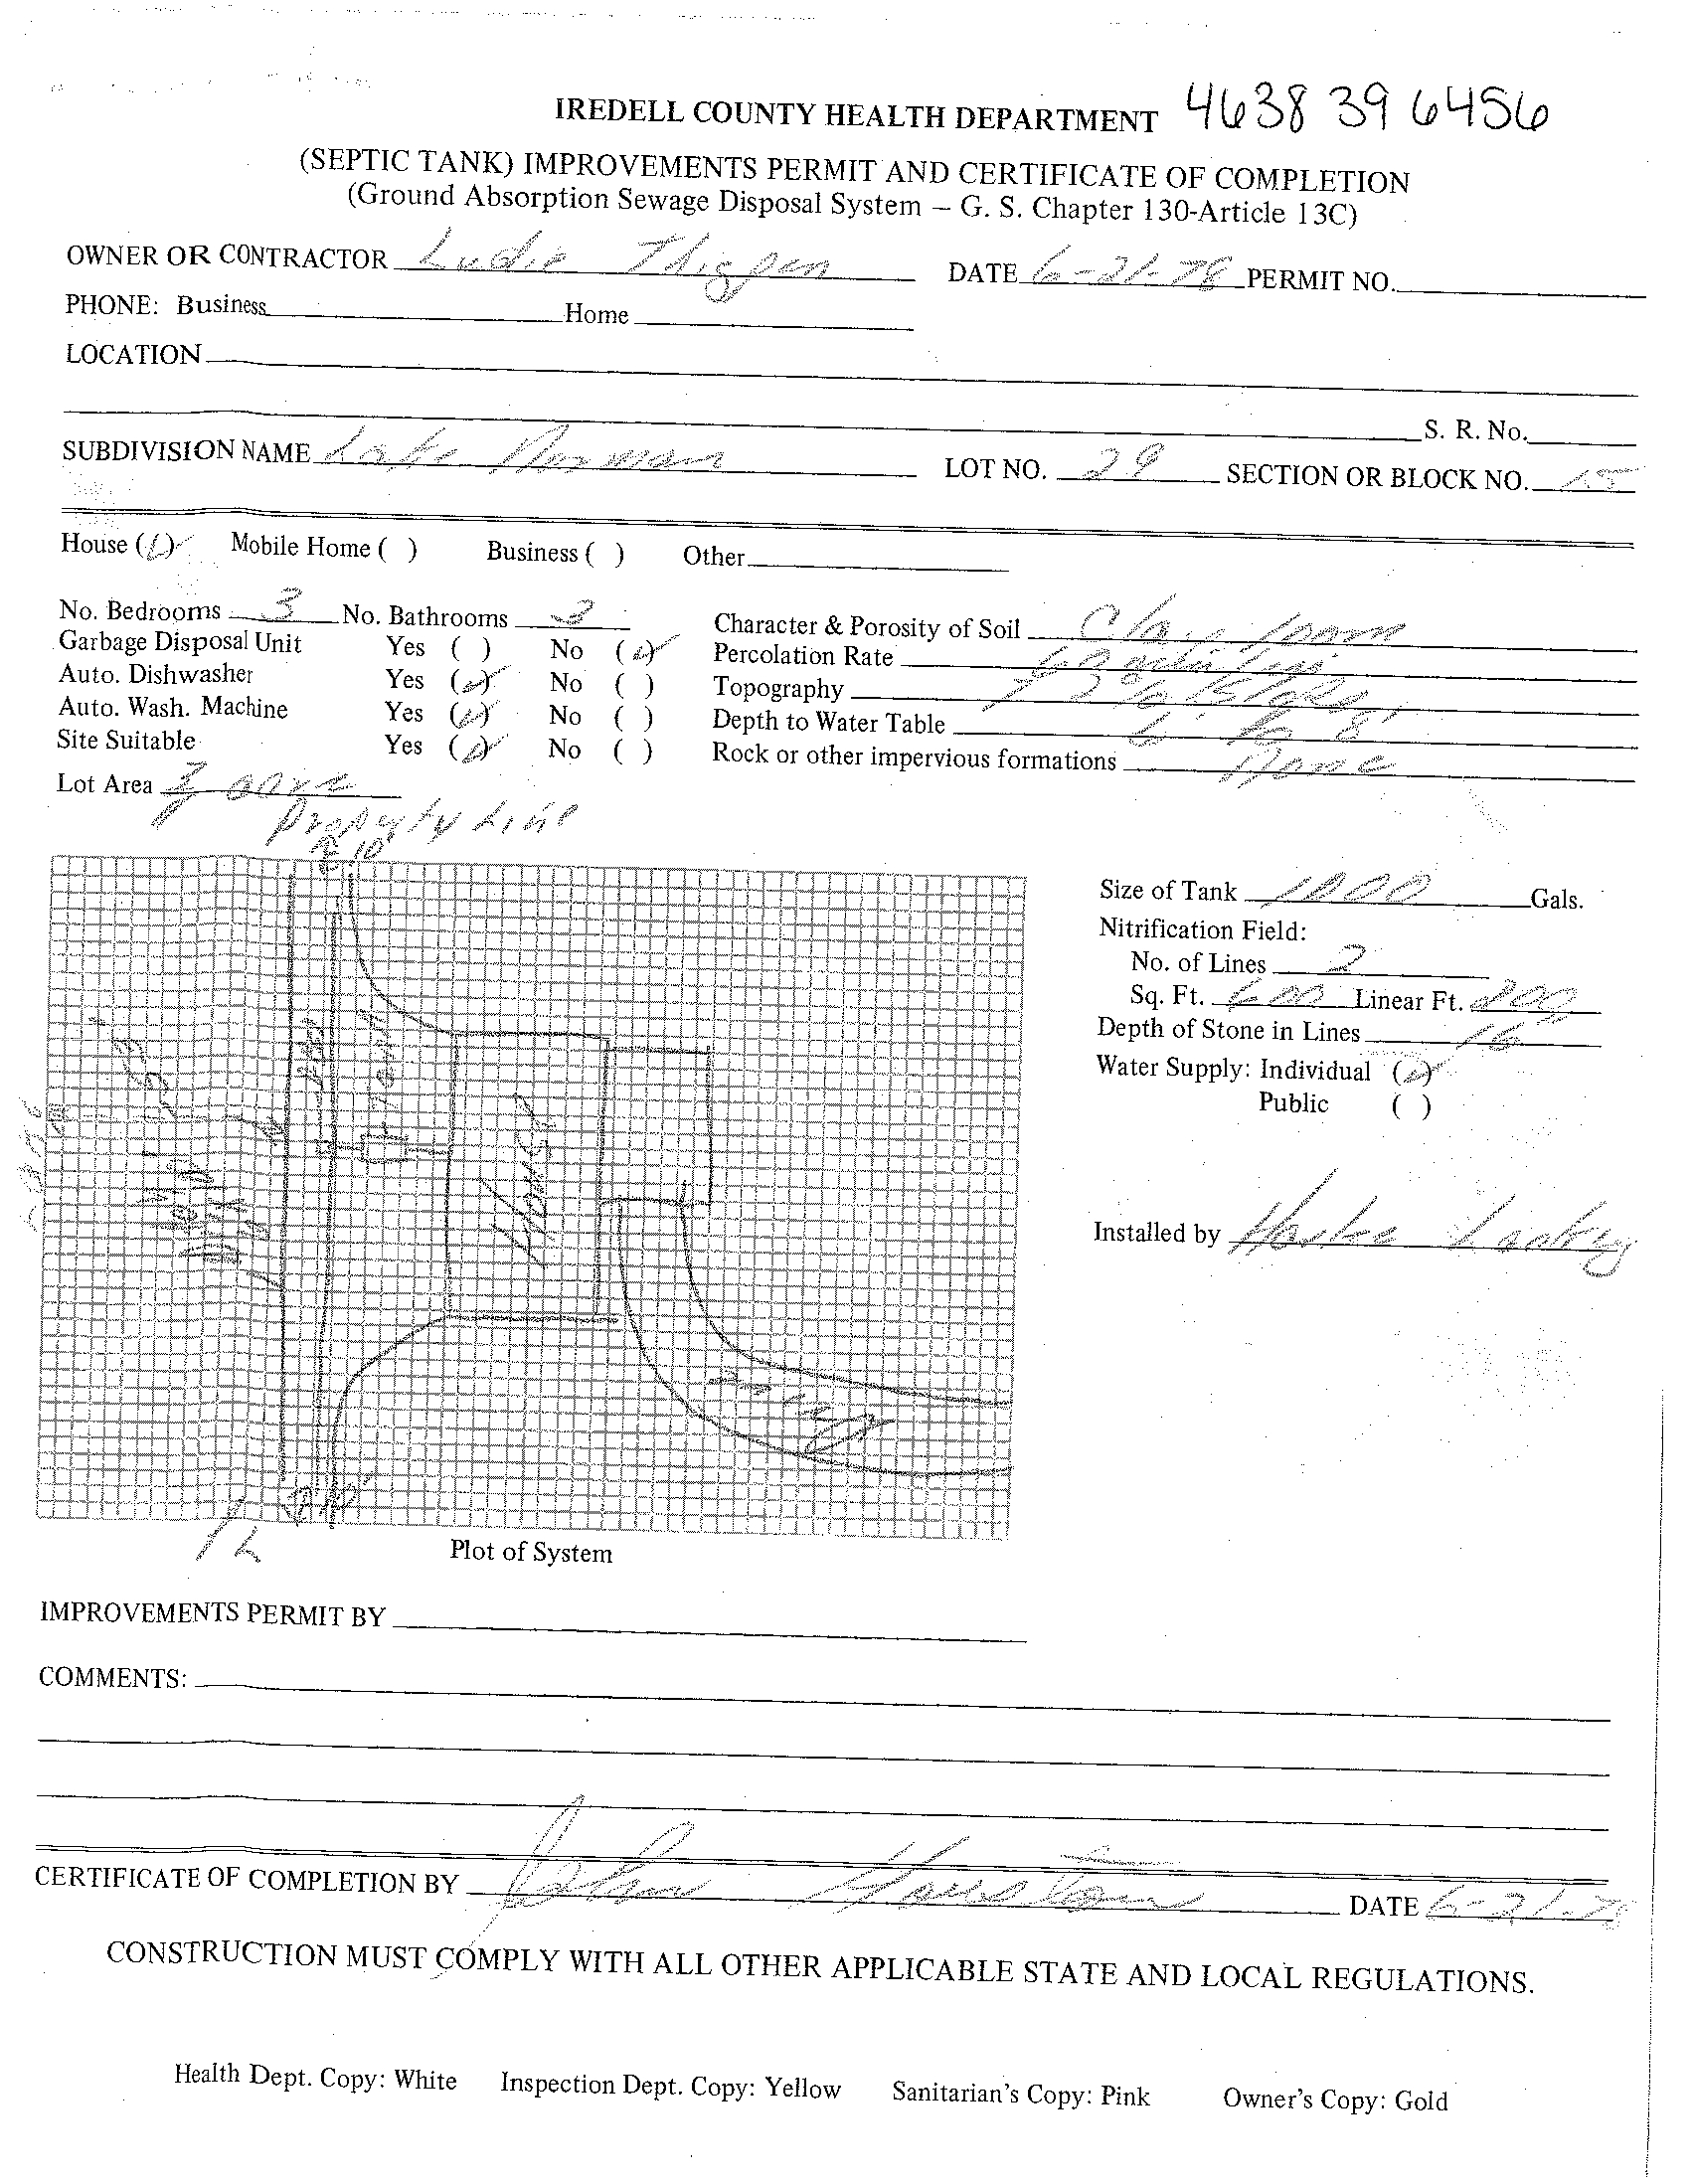 IREDELL COUNTY HEALTH DEPARTMENT 4638 39 6456
(SEPTIC TANK) IMPROVEMENTS PERMIT AND CERTIFICATE OF COMPLETION
(Ground Absorption Sewage Disposal System – G. S. Chapter 130-Article 13C)
OWNER OR CONTRACTOR Ludie Thigpen DATE 6-21-78 PERMIT NO.
PHONE: Business Home
LOCATION
S. R. No.
SUBDIVISION NAME Lake Norman LOT NO. 29 SECTION OR BLOCK NO. 15
House (✓) Mobile Home ( ) Business ( ) Other
No. Bedrooms 3 No. Bathrooms Character & Porosity of Soil Clay loam
Garbage Disposal Unit Yes ( ) No (✓) Percolation Rate 60
Auto. Dishwasher Yes (✓) No ( ) Topography 2% Slope
Auto. Wash. Machine Yes (✓) No ( ) Depth to Water Table 6 to 8'
Site Suitable Yes (✓) No ( ) Rock or other impervious formations None
Lot Area acre
Property Line
10
Size of Tank 1000 Gals.
Nitrification Field:
No. of Lines 2
Sq. Ft. 600 Linear Ft. 200
Depth of Stone in Lines 16
Water Supply: Individual (✓)
Public ( )
House
Installed by Lackey
Plot of System
IMPROVEMENTS PERMIT BY
COMMENTS:
CERTIFICATE OF COMPLETION BY John Houston DATE 6-21-78
CONSTRUCTION MUST COMPLY WITH ALL OTHER APPLICABLE STATE AND LOCAL REGULATIONS.
Health Dept. Copy: White Inspection Dept. Copy: Yellow Sanitarian's Copy: Pink Owner's Copy: Gold